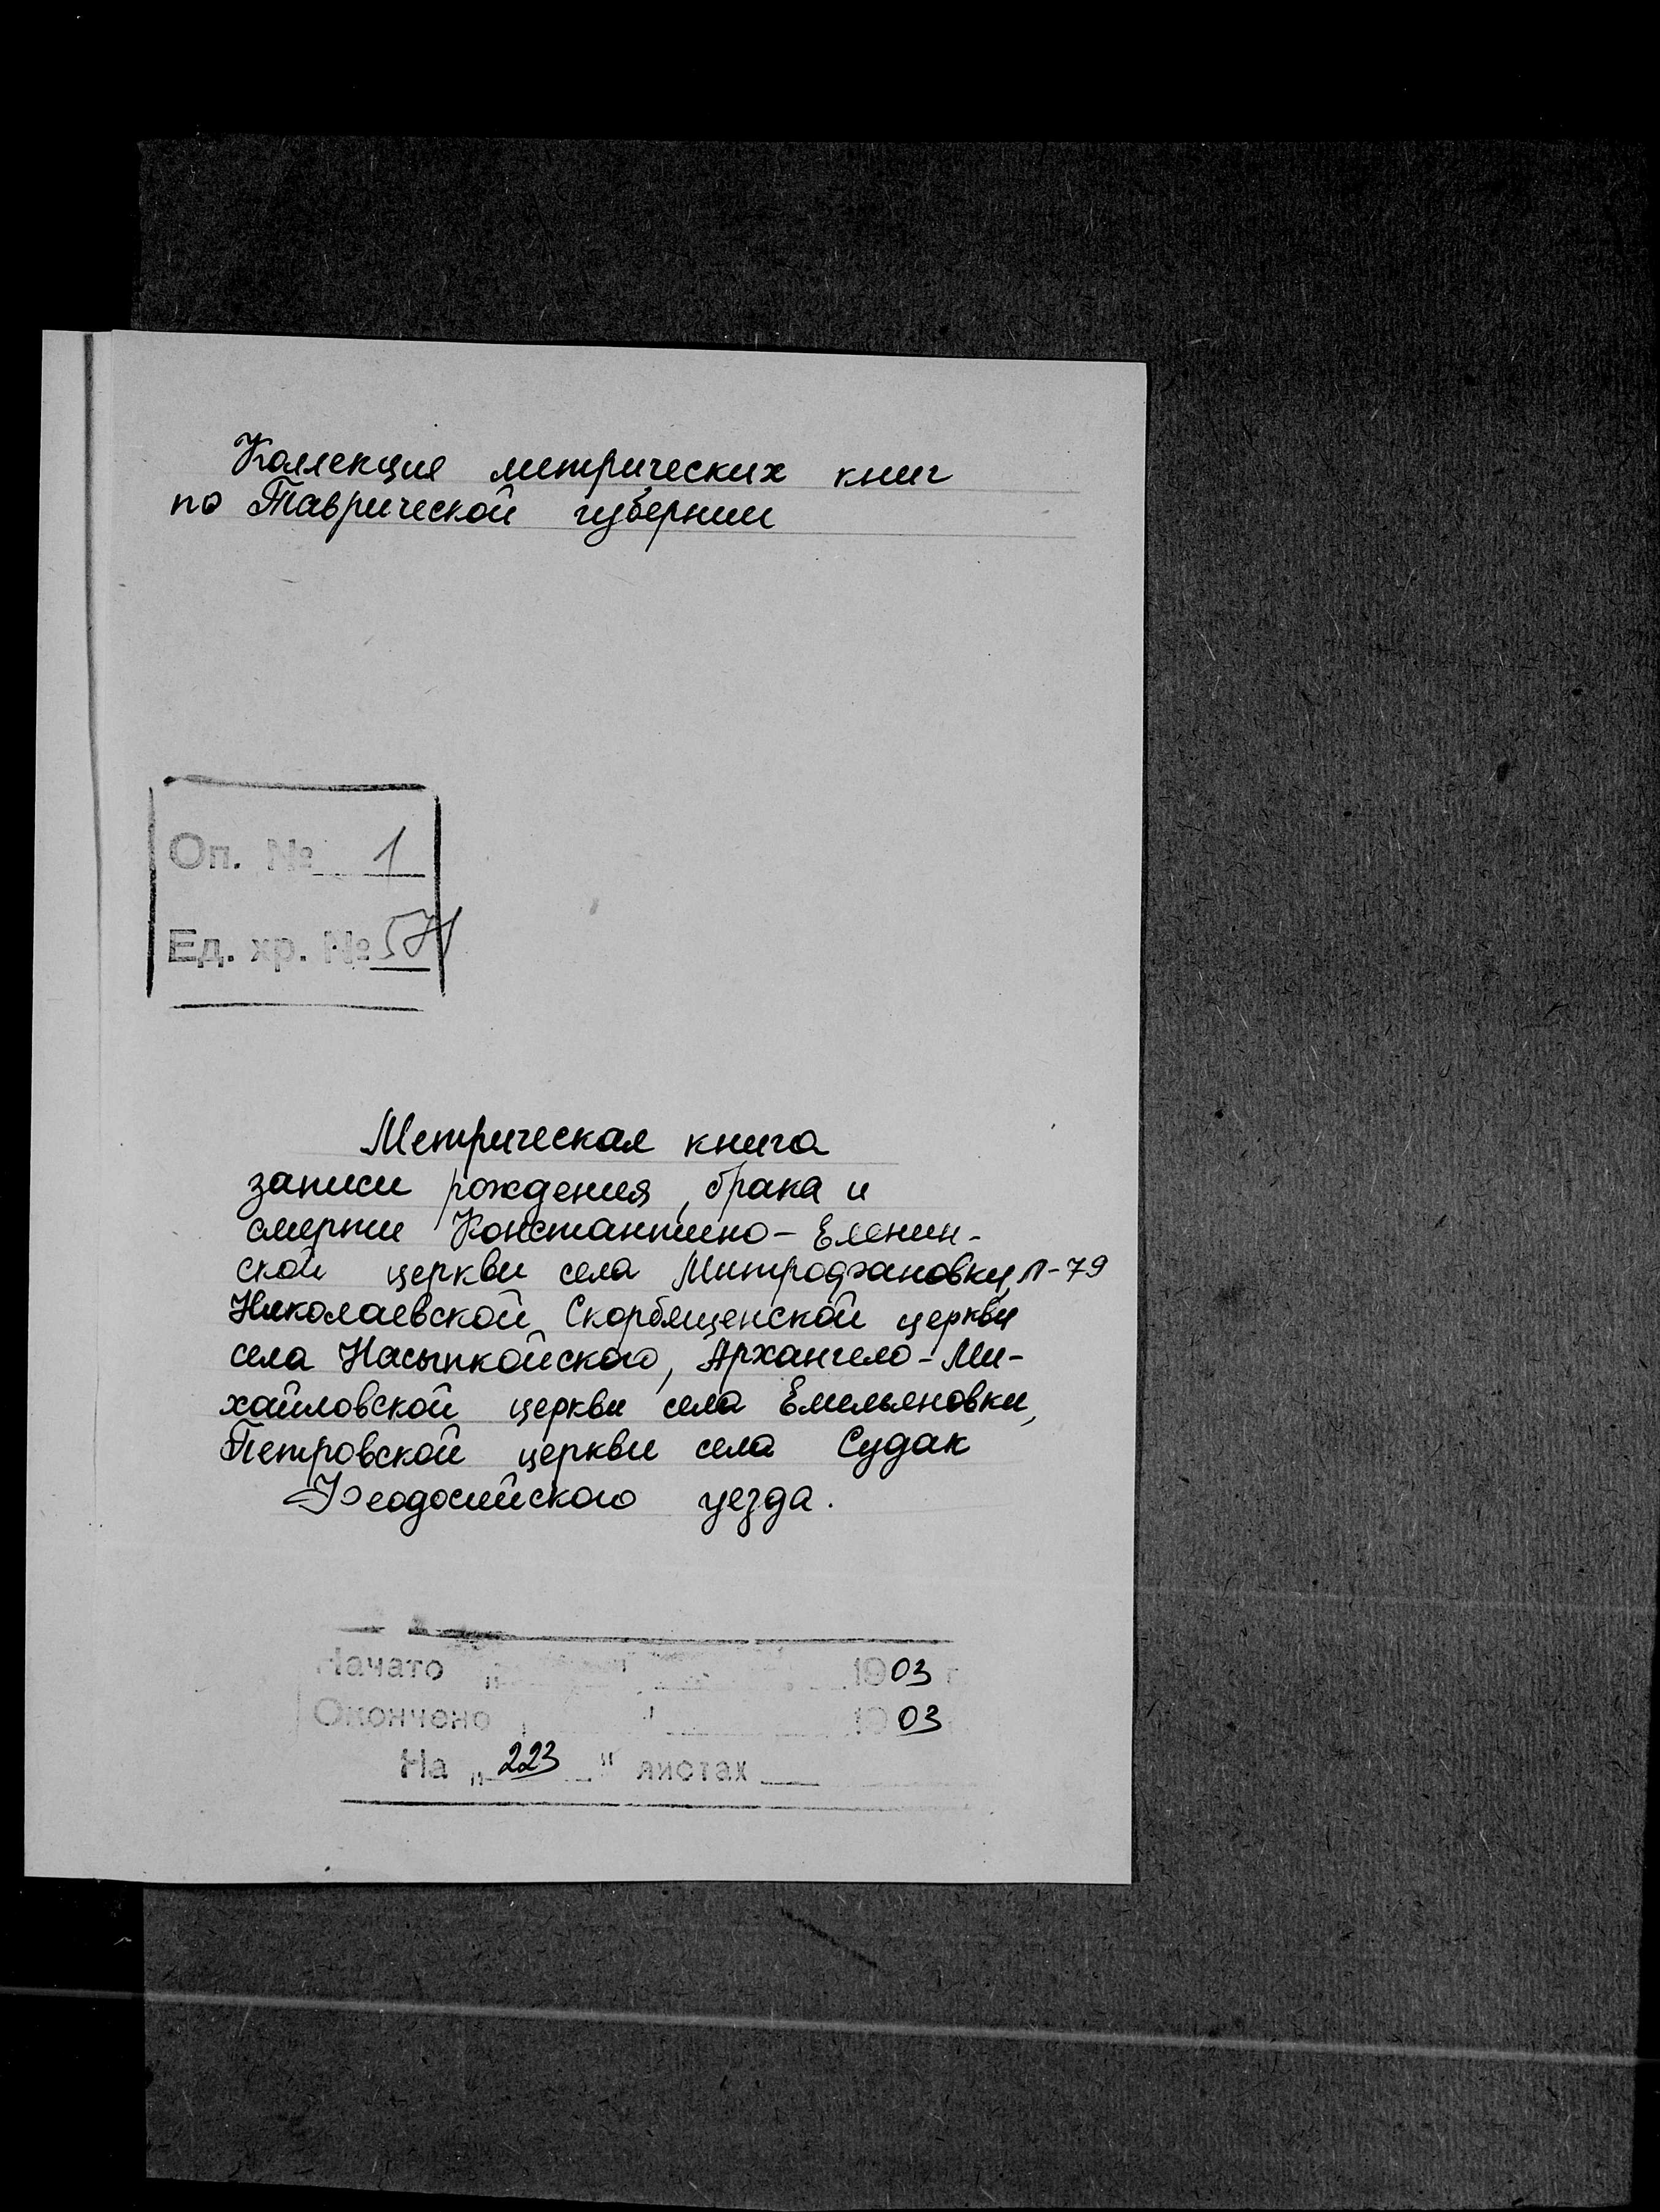 Коллекция метрических книг
по Таврической губернии
Оп. № 1
Ед. хр. № 571
Метрическая книга
записи рождения, брака и
смерти Константино-Еленин-
ской церкви села Митрофановки, л-79
Николаевской Скорбященской церкви
села Насыпкойского, Архангело-Ми-
хайловской церкви села Емельяновки,
Петровской церкви села Судак
Феодосийского уезда.
Начато " " 1903 г
Окончено " 1903
На „223" листах